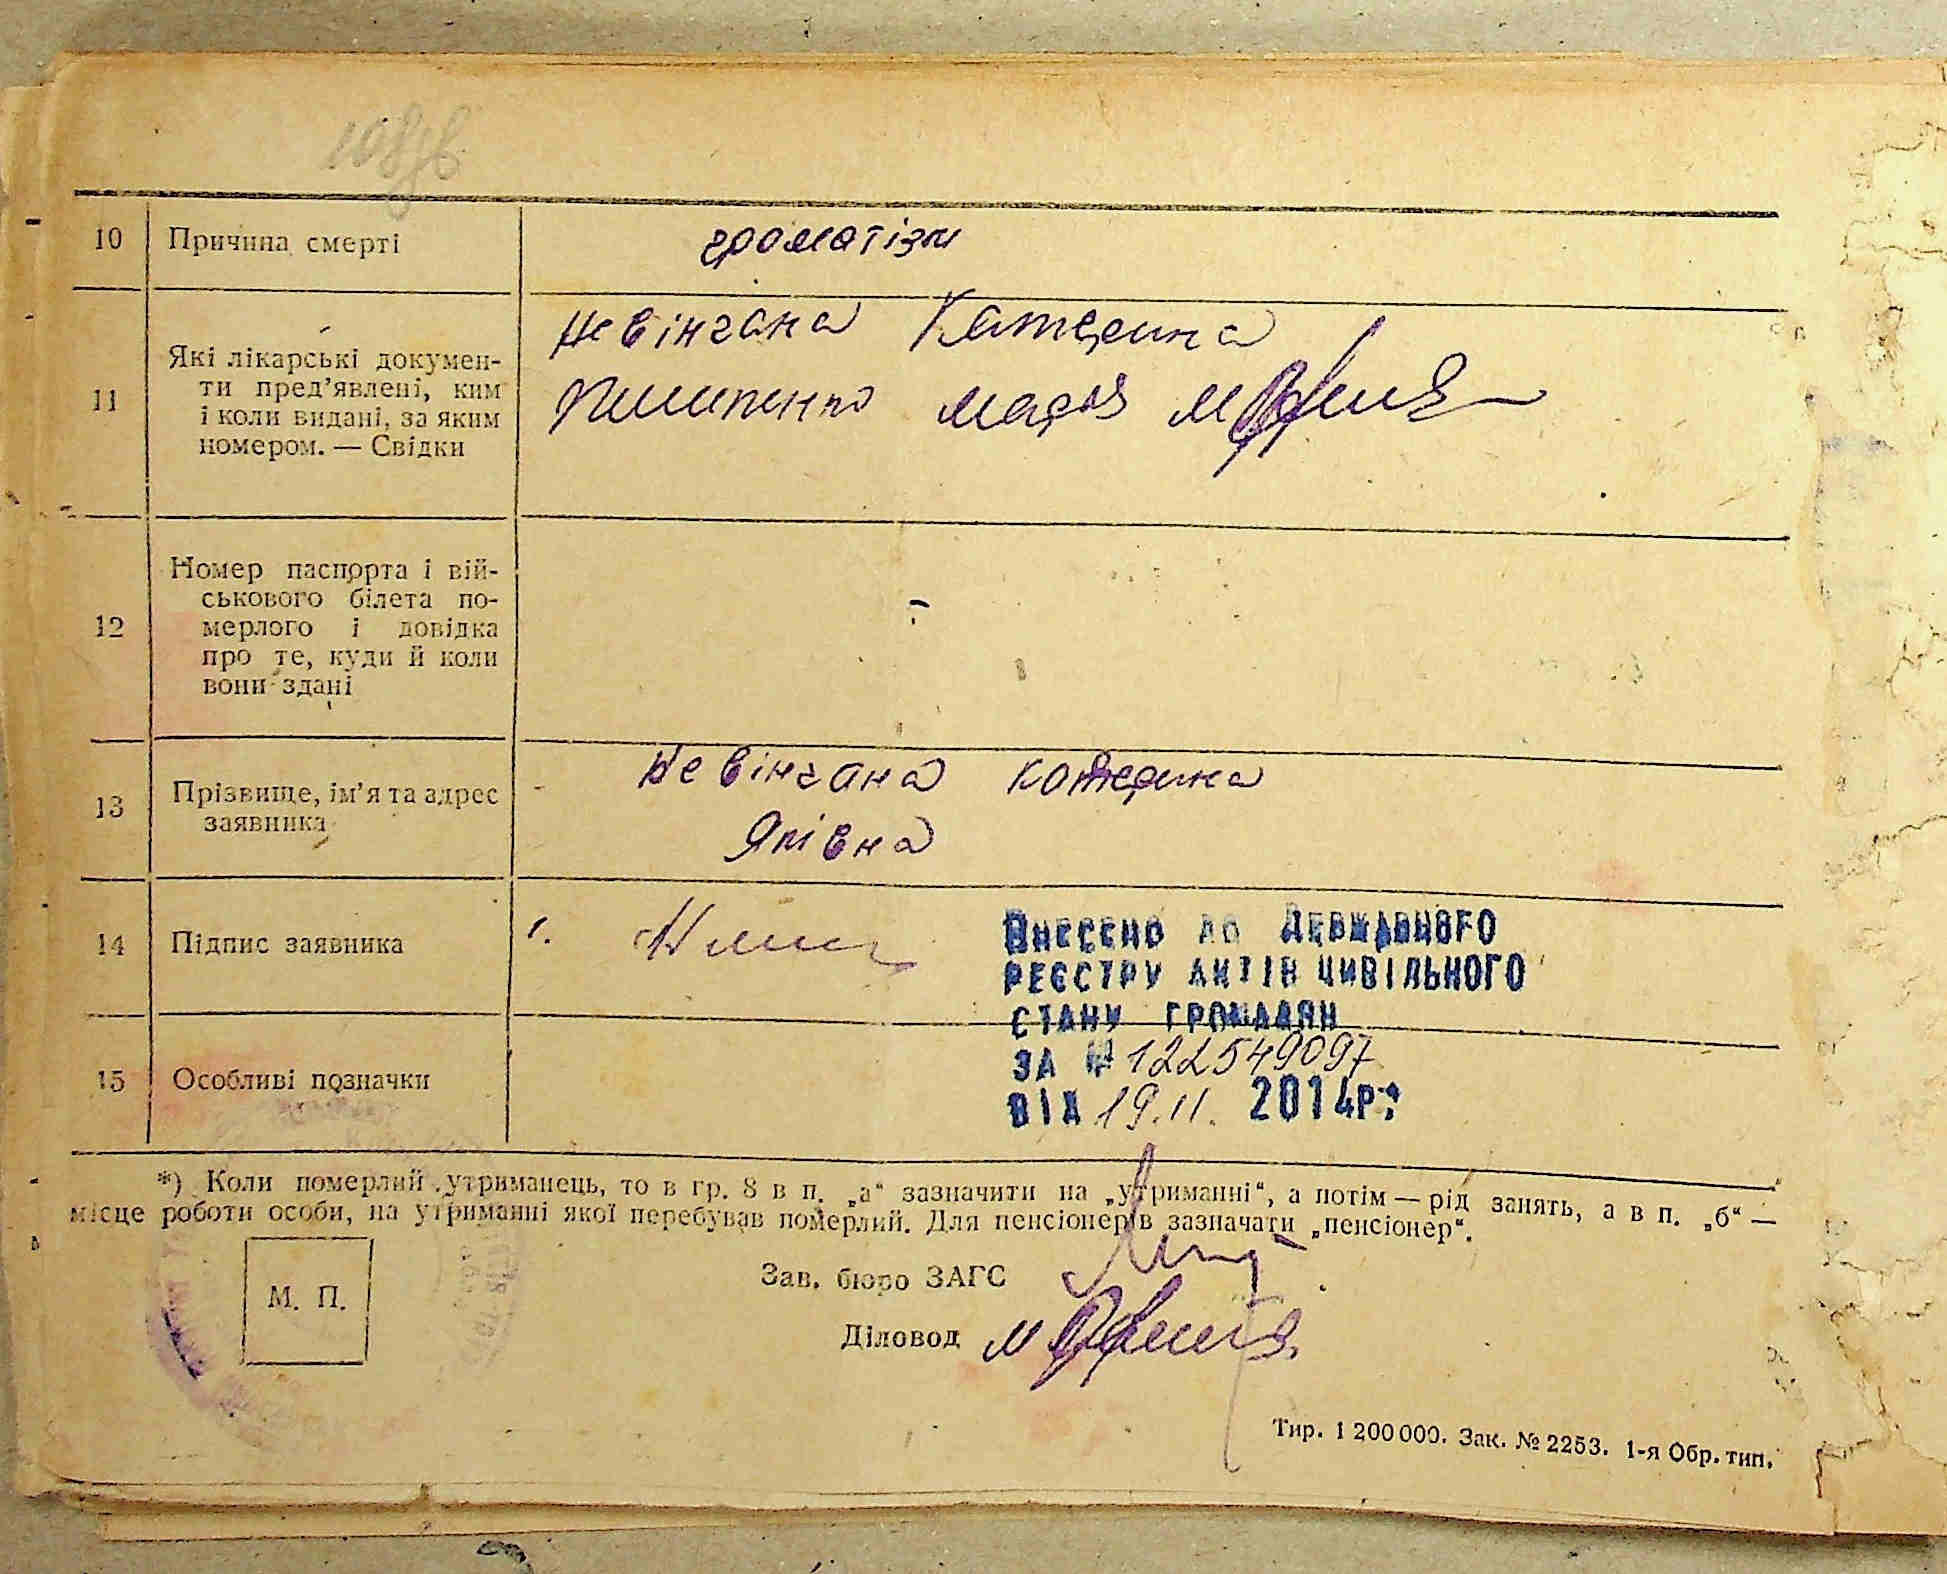 10 Причина смерті громатізм
11 Які лікарські докумен-
ти пред’явлені, ким
і коли видані, за яким
номером. — Свідки
Невінчана Катерина
Пилипенко Марія
12 Номер паспорта і вій-
ськового білета по-
мерлого і довідка
про те, куди й коли
вони здані
-
13 Прізвище, ім’я та адрес
заявника
Невінчана Катерина
Яківна
14 Підпис заявника
15 Особливі позначки
Внесено до Державного
реєстру актів цивільного
стану громадян
за № 122549097
від 19.11. 2014р.
*) Коли померлий утриманець, то в гр. 8 в п. „а“ зазначити на „утриманні“, а потім — рід занять, а в п. „б“ —
місце роботи особи, на утриманні якої перебував померлий. Для пенсіонерів зазначати „пенсіонер“.
М. П.
Зав. бюро ЗАГС
Діловод
Тир. 1 200 000. Зак. № 2253. 1-я Обр. тип.